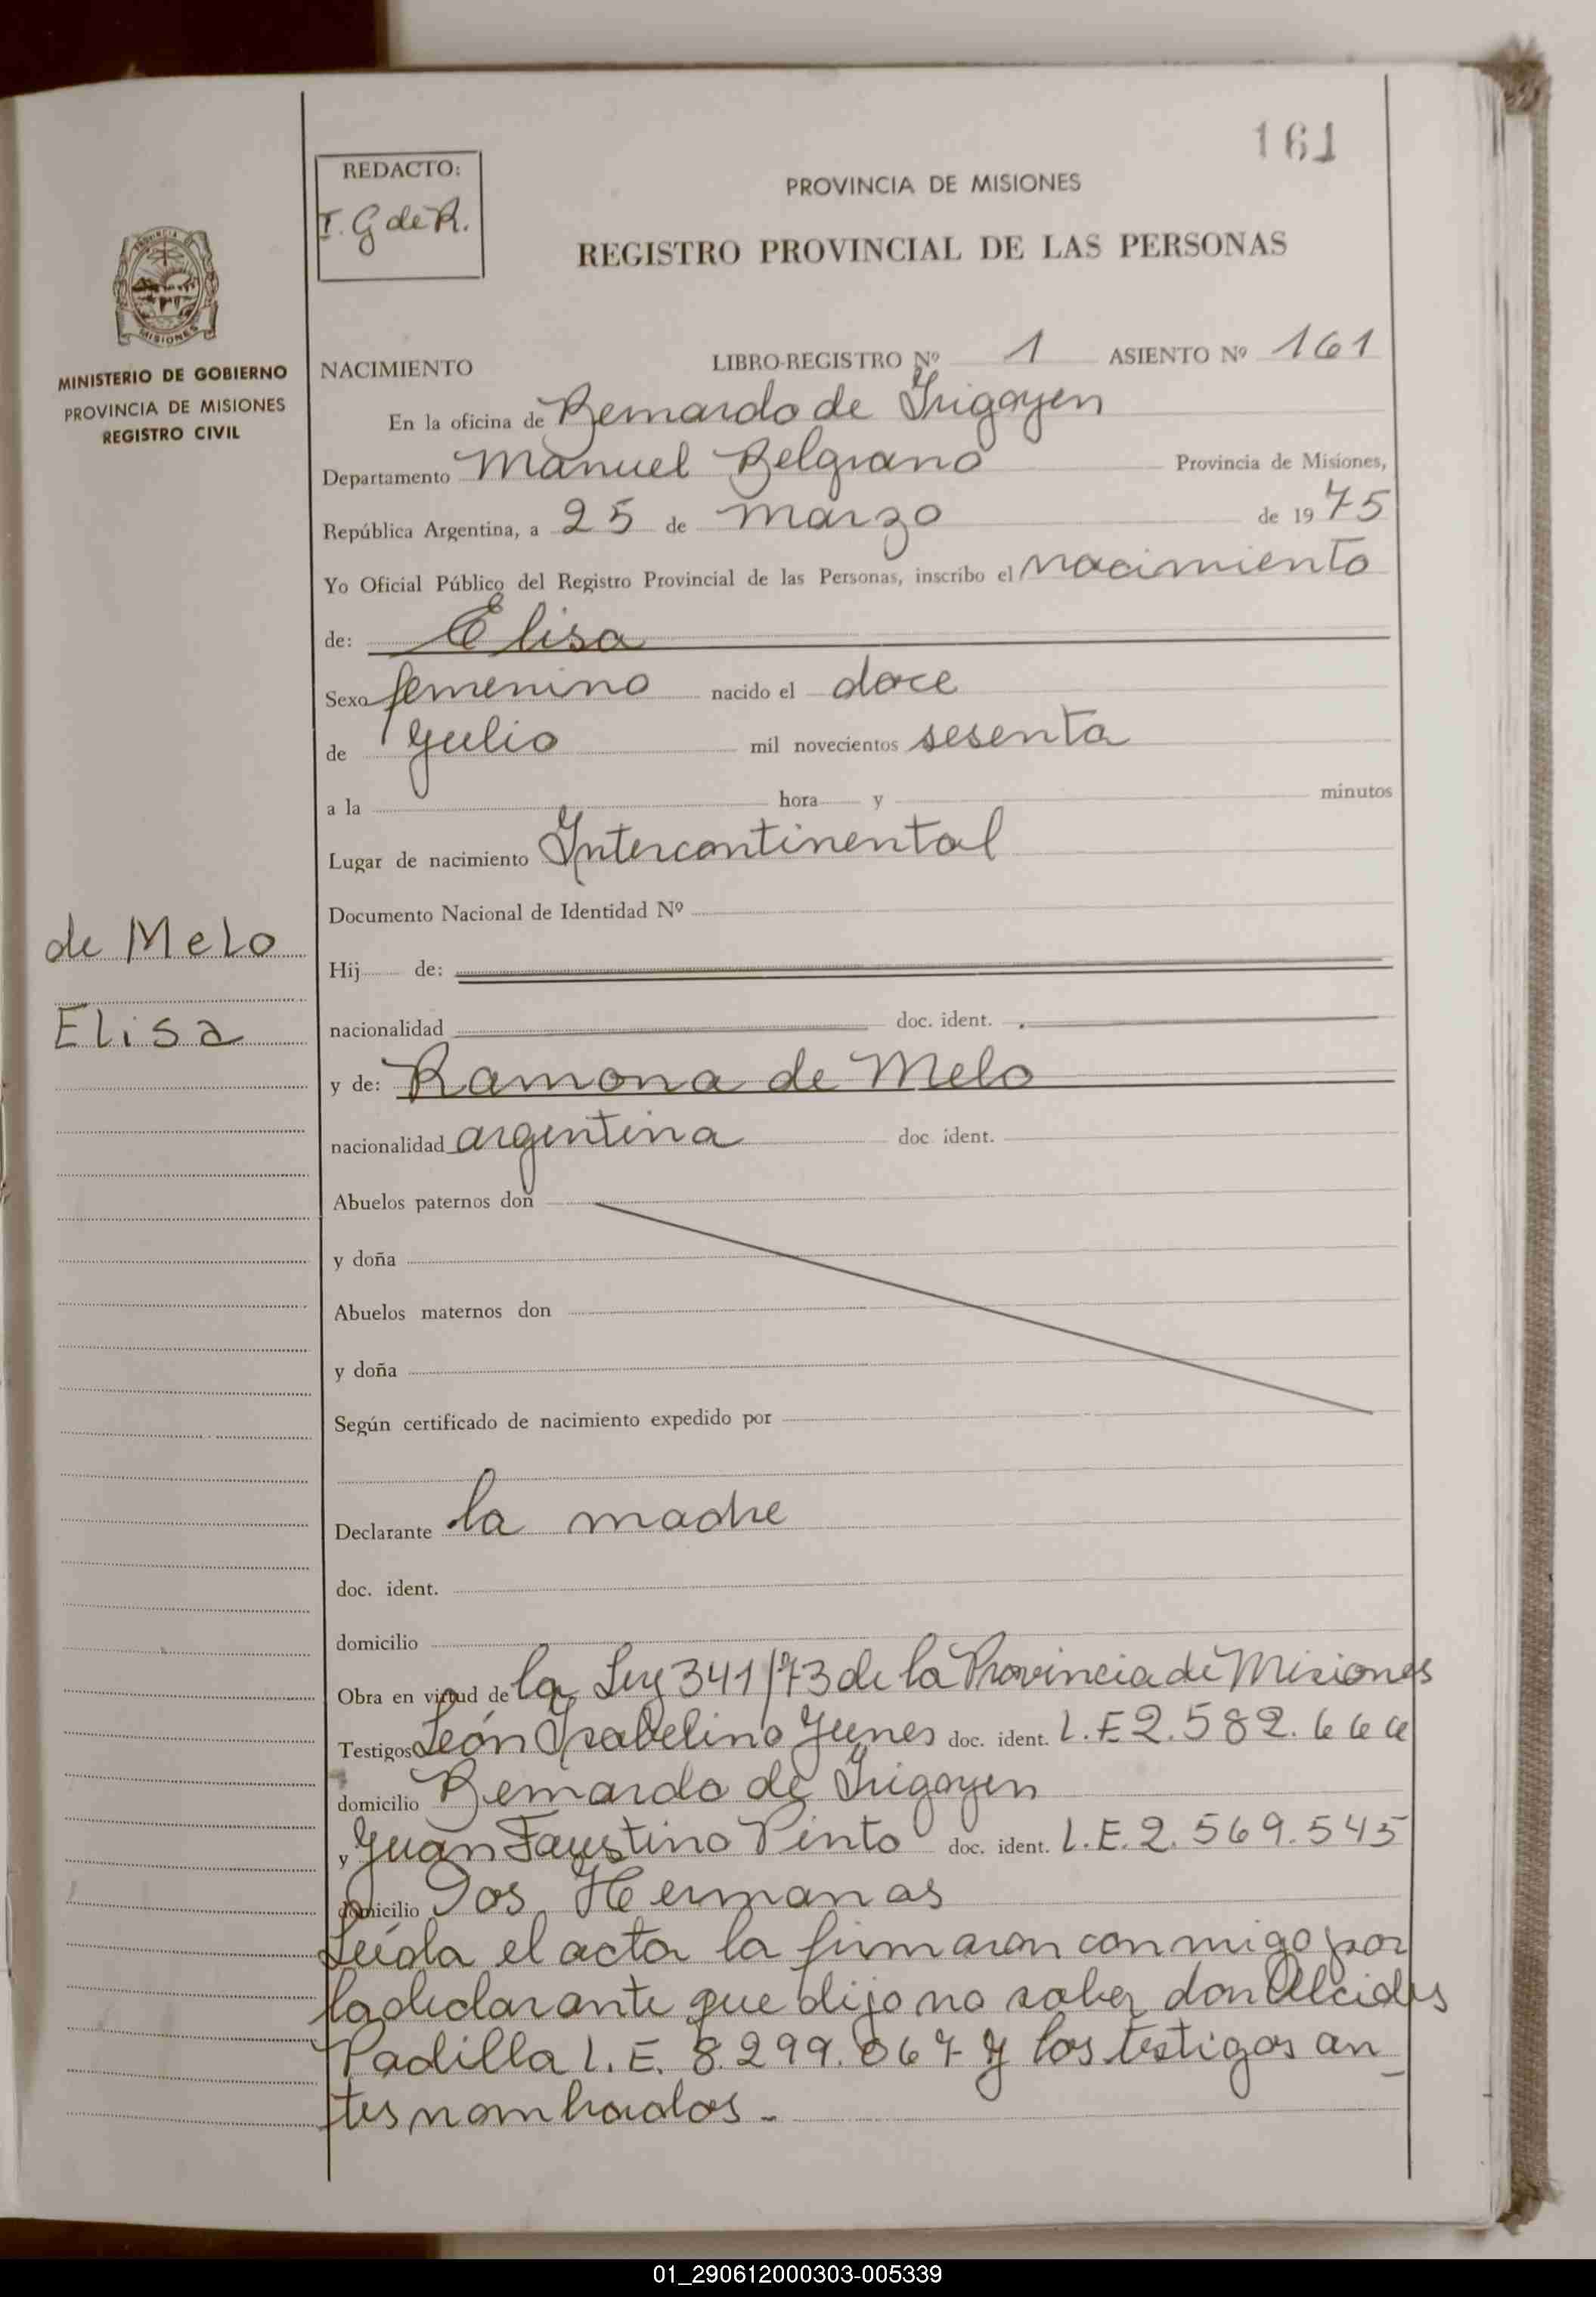 161
REDACTO:
I. G de R.
PROVINCIA DE MISIONES
REGISTRO PROVINCIAL DE LAS PERSONAS
PROVINCIA DE
MISIONES
MINISTERIO DE GOBIERNO
PROVINCIA DE MISIONES
REGISTRO CIVIL
NACIMIENTO LIBRO-REGISTRO Nº 1 ASIENTO Nº 161
En la oficina de Bernardo de Irigoyen
Departamento Manuel Belgrano Provincia de Misiones,
República Argentina, a 25 de marzo de 1975
Yo Oficial Público del Registro Provincial de las Personas, inscribo el nacimiento
de: Elisa
Sexo femenino nacido el doce
de julio mil novecientos sesenta
a la hora y minutos
Lugar de nacimiento Intercontinental
Documento Nacional de Identidad Nº
de Melo
Hij de:
Elisa
nacionalidad doc. ident.
y de: Ramona de Melo
nacionalidad argentina doc ident.
Abuelos paternos don
y doña
Abuelos maternos don
y doña
Según certificado de nacimiento expedido por
Declarante la madre
doc. ident.
domicilio
Obra en virtud de la Ley 341/73 de la Provincia de Misiones
Testigos León Isabelino Yunes doc. ident. L.E 2.582.666
domicilio Bernardo de Irigoyen
y Juan Faustino Pinto doc. ident. L.E. 2.569.545
domicilio Dos Hermanas
Leída el acta la firmaron conmigo por
la declarante que dijo no saber don Alcides
Padilla L.E. 8.299.067 y los testigos an_
tes nombrados.-
01_290612000303-005339